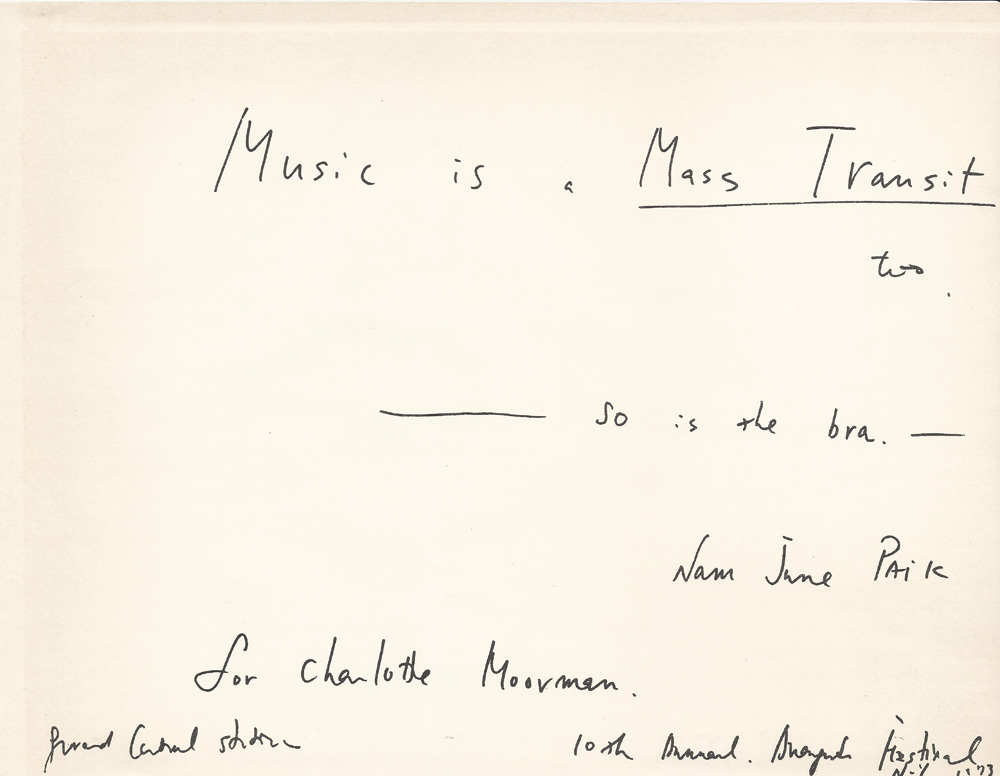 Music is a Mass Transit
too.
—— so is the bra. —
Nam June PAiK
for Charlotte Moorman.
Grand Central station
10th Annual. Avangarde Festival
N.Y. 1973